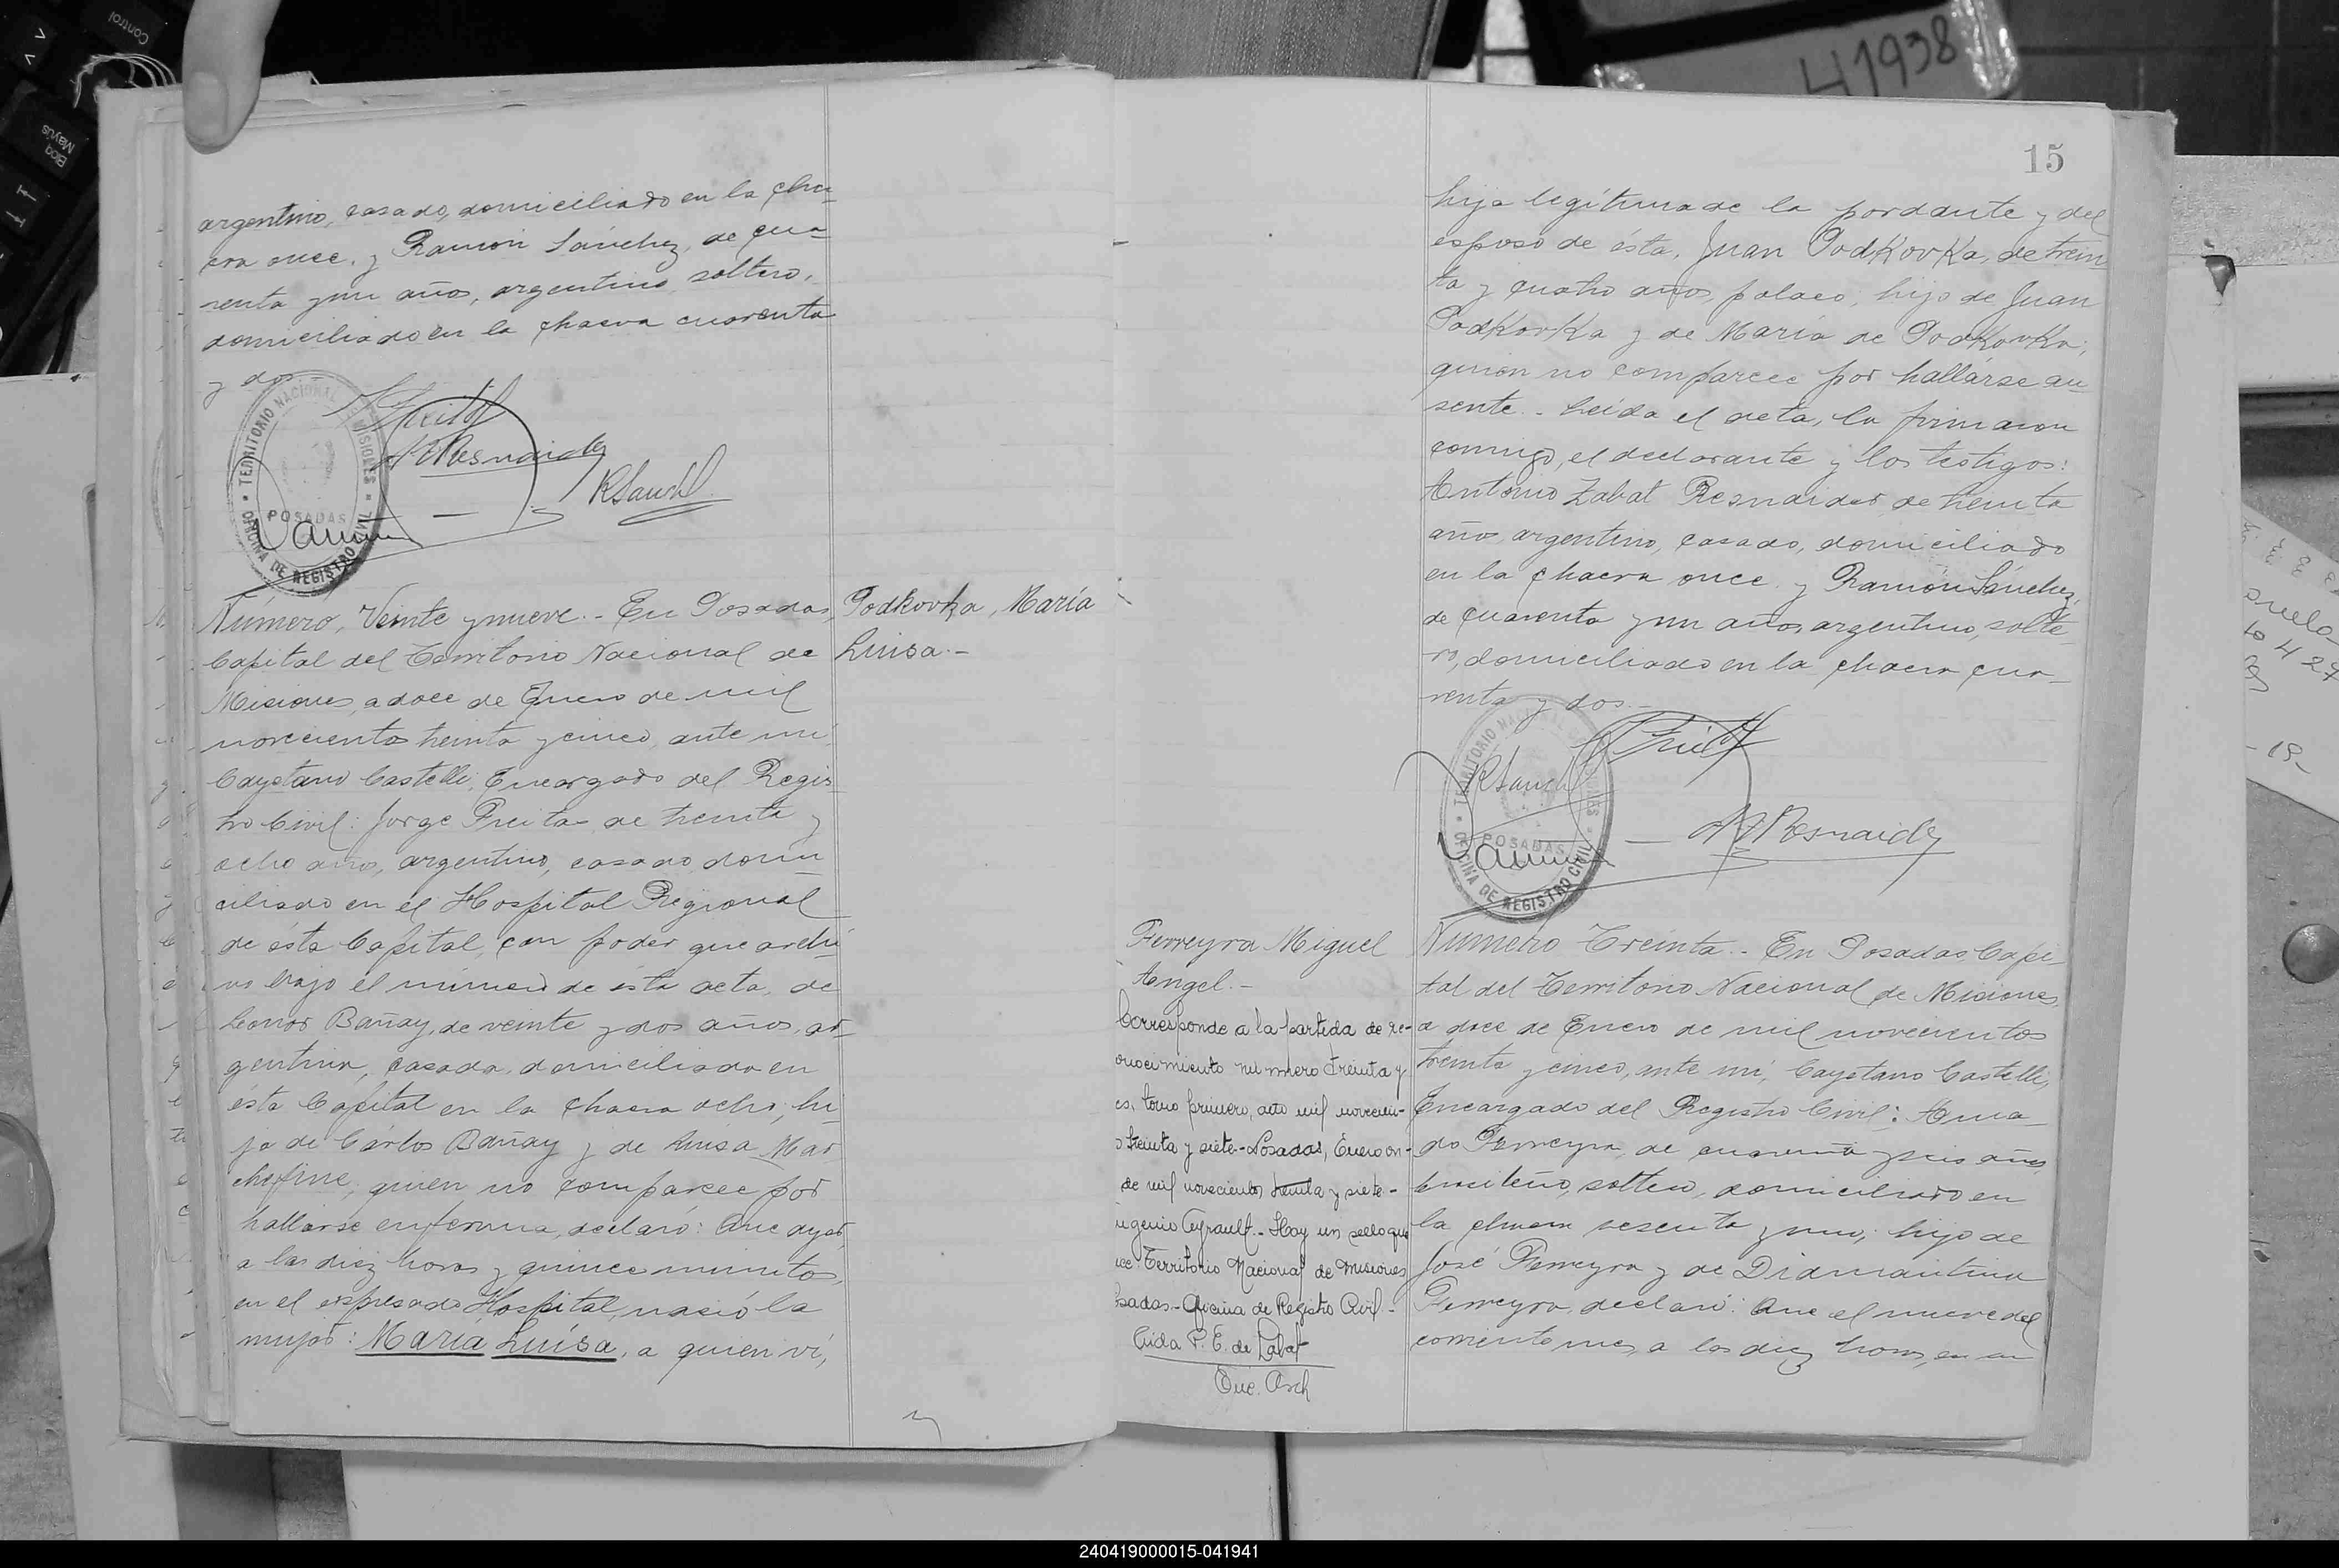 argentino, casado, domiciliado en la cha-
cra once, y Ramón Sánchez, de cua-
renta y un año, argentino, soltero,
domiciliado en la chacra cuarenta
y dos
TERRITORIO NACIONAL MISIONES
POSADAS
OFICINA DE REGISTRO CIVIL
Número, Veinte y nueve.- En Posadas,
Capital del Territorio Nacional de
Misiones, a doce de Enero de mil
novecientos treinta y cinco, ante mi,
Cayetano Castelli, Encargado del Regis
tro Civil: Jorge Freitas de treinta y
ocho años, argentino, casado, domi
ciliado en el Hospital Regional
de ésta Capital, con poder que archi-
vo bajo el número de ésta acta, de
Leonor Bañay, de veinte y dos años, ar-
gentina, casada, domiciliada en
ésta Capital en la chacra ocho, hi-
ja de Cárlos Bañay y de Luisa Mar
quien no comparece por
hallarse enferma, declaró: Que ayer,
a las diez horas y quince minutos,
en el expresado Hospital, nació la
mujer: María Luísa, a quien ví,
Podkovka, María
Luisa.-
15
hija legítima de la pordante y del
esposo de ésta, Juan Podkovka, de trein
ta y cuatro años, polaco, hijo de Juan
Podkovka y de María de Podkovka,
quien no comparece por hallarse au
sente.- Leída el acta, la firmaron
conmigo, el declarante y los testigos:
Antonio Zabat Resnaider de treinta
años, argentino, casado, domiciliado
en la chacra once y Ramón Sánchez,
de cuarenta y un años, argentino, solte-
ro, domiciliado en la chacra cua-
renta y dos.-
POSADAS
OFICINA DE REGISTRO CIVIL
Ferreyra Miguel
Angel.-
Corresponde a la partida de re-
onocimiento número treinta y
es, tomo primero, año mil novecien-
s treinta y siete.- Posadas, Enero on-
de mil novecientos treinta y siete.-
Hay un sello que
ice Territorio Nacional de Misiones
sadas - Oficina de Registro Civil -
P. E. de Zabat
Número Treinta.- En Posadas Capi-
tal del Territorio Nacional de Misiones,
a doce de Enero de mil novecientos
treinta y cinco, ante mí, Cayetano Castelli,
Encargado del Registro Civil: Ama-
do Ferreyra, de cuarenta y seis años,
brasileño, soltero, domiciliado en
la chacra sesenta y uno, hijo de
José Ferreyra y de Diamantina
Ferreyra, declaró: Que el nueve del
corriente mes, a las diez horas, en su
41938
240419000015-041941